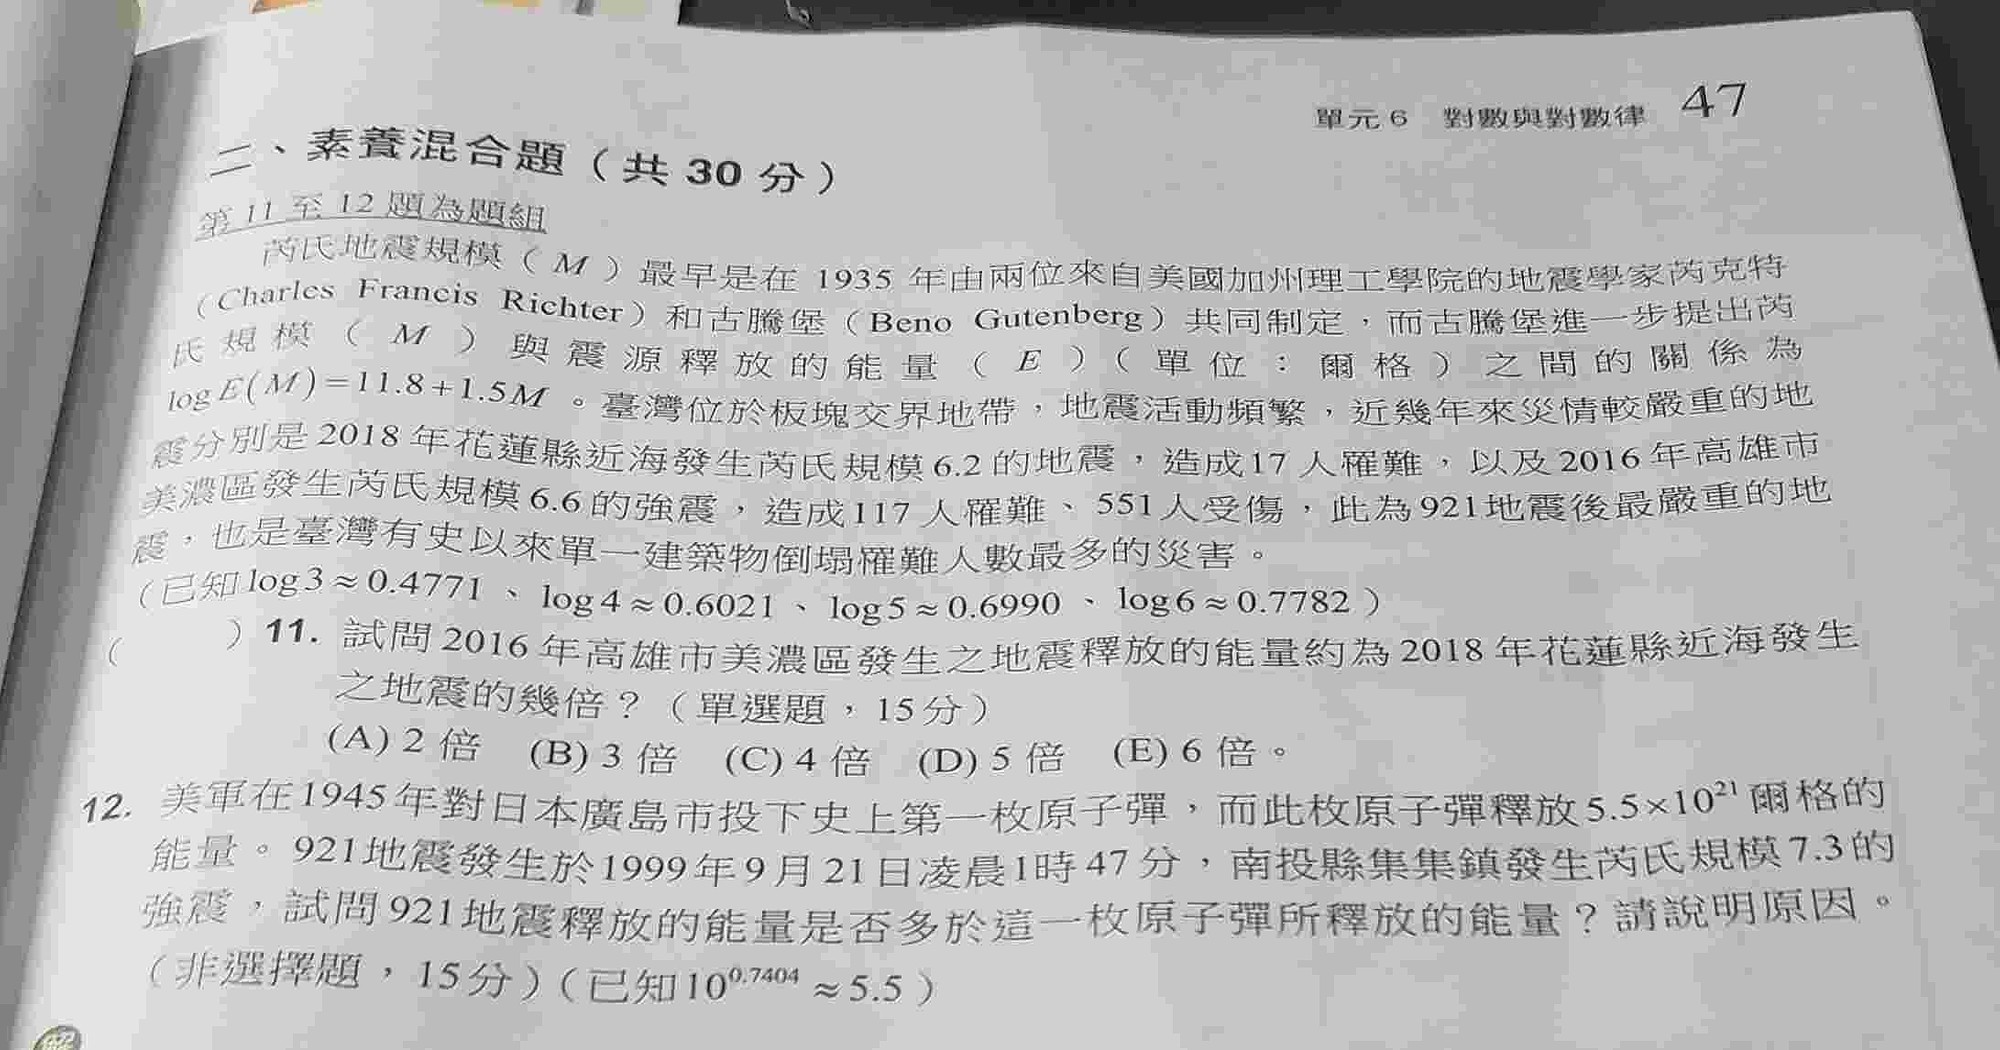 單元 6 對數與對數律 47
二、素養混合題（共 30 分）
第 11 至 12 題為題組
芮氏地震規模（M）最早是在 1935 年由兩位來自美國加州理工學院的地震學家芮克特
（Charles Francis Richter）和古騰堡（Beno Gutenberg）共同制定，而古騰堡進一步提出芮
氏規模（M）與震源釋放的能量（E）（單位：爾格）之間的關係為
log E(M)=11.8+1.5M。臺灣位於板塊交界地帶，地震活動頻繁，近幾年來災情較嚴重的地
震分別是 2018 年花蓮縣近海發生芮氏規模 6.2 的地震，造成 17 人罹難，以及 2016 年高雄市
美濃區發生芮氏規模 6.6 的強震，造成 117 人罹難、551 人受傷，此為 921 地震後最嚴重的地
震，也是臺灣有史以來單一建築物倒塌罹難人數最多的災害。
（已知 log3≈0.4771、log4≈0.6021、log5≈0.6990、log6≈0.7782）
（ ）11. 試問 2016 年高雄市美濃區發生之地震釋放的能量約為 2018 年花蓮縣近海發生
之地震的幾倍？（單選題，15 分）
(A) 2 倍 (B) 3 倍 (C) 4 倍 (D) 5 倍 (E) 6 倍。
12. 美軍在 1945 年對日本廣島市投下史上第一枚原子彈，而此枚原子彈釋放 5.5×10²¹ 爾格的
能量。921 地震發生於 1999 年 9 月 21 日凌晨 1 時 47 分，南投縣集集鎮發生芮氏規模 7.3 的
強震，試問 921 地震釋放的能量是否多於這一枚原子彈所釋放的能量？請說明原因。
（非選擇題，15 分）（已知 10⁰·⁷⁴⁰⁴≈5.5）